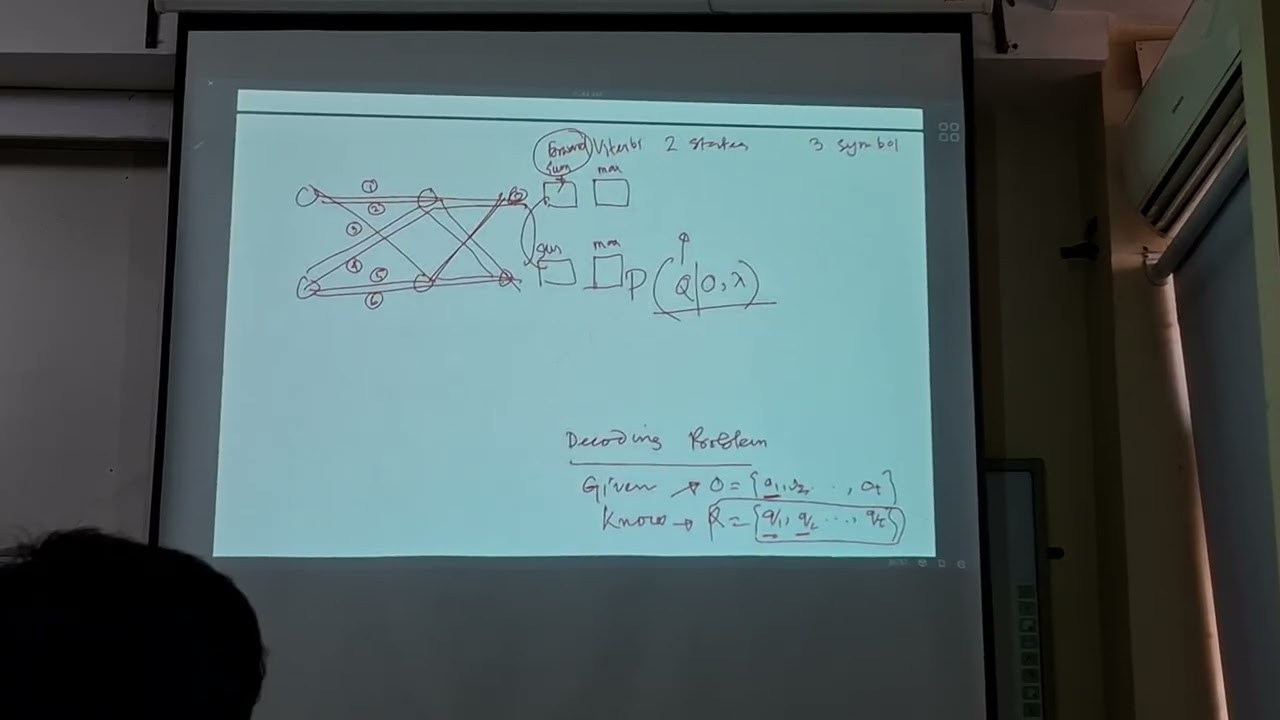 Forward Viterbi 2 states 3 symbol
sum max
①
②
③
④
⑤
⑥
sum max
P(Q|O,λ)
Decoding Problem
Given → O = {o1, o2, . . ., ot}
Know → Q = {q1, q2 . . ., qt}